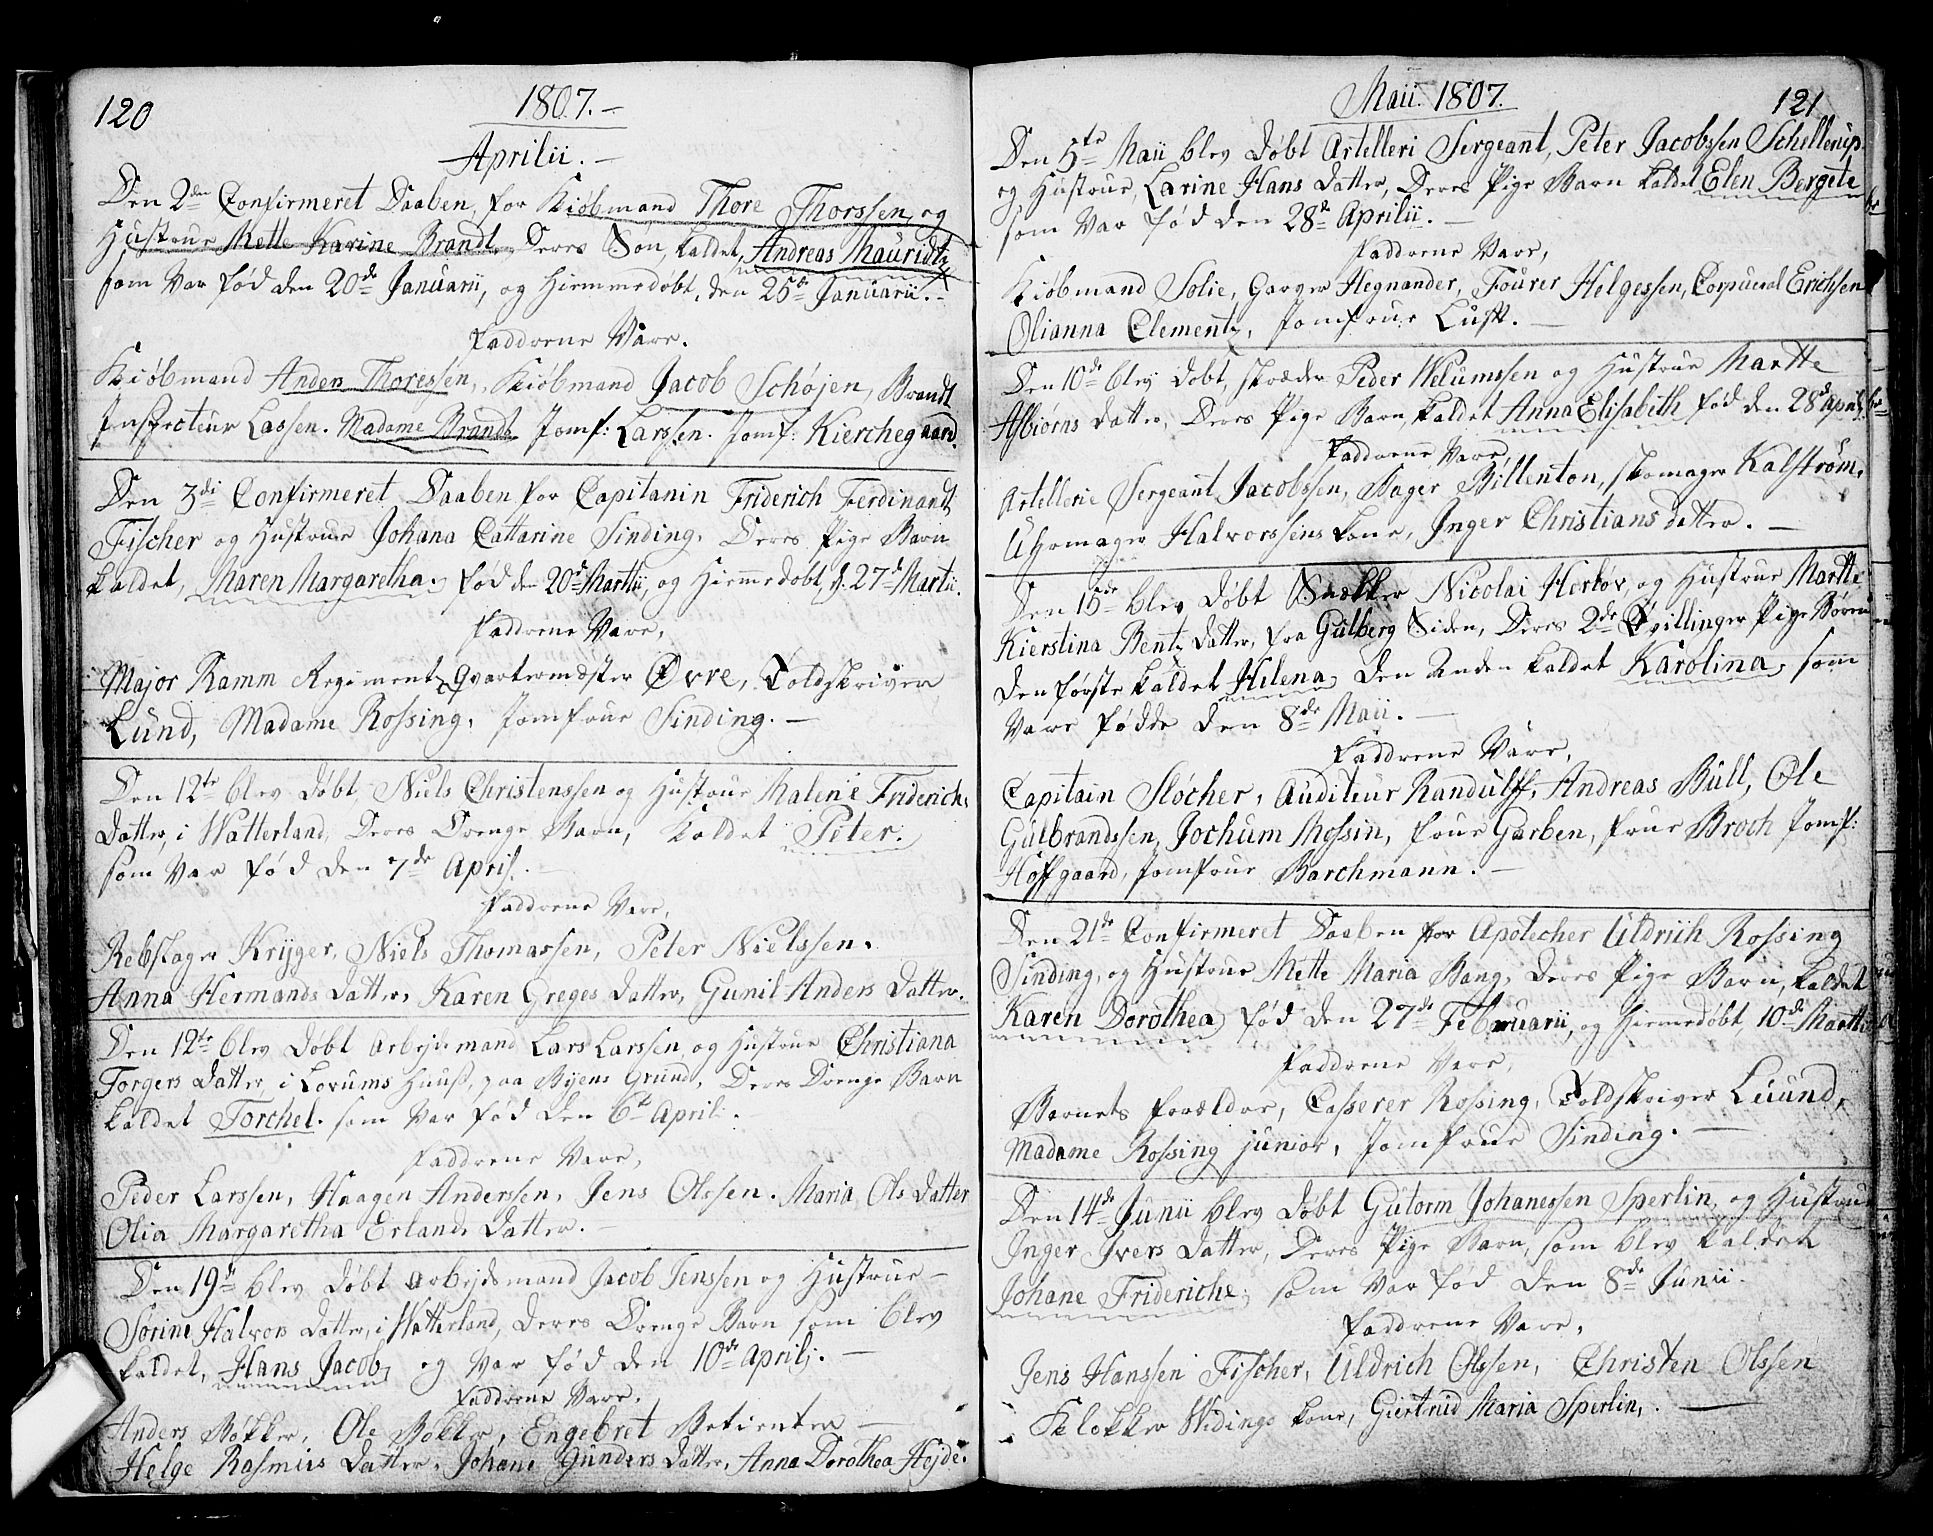 120
1807.
Aprilii.
Den 2den Confirmeret Daaben, for Kiøbmand Thore Thorssen, og
Hustrue Mette Karine Brandt, Deres Søn, kaldet, Andreas Mauridtz
som Var fød den 20de Januarii, og Hiemmedøbt, den 25de Januarii.
Faddrene Vare.
Kiøbmand Anden Thoressen, Kiøbmand Jacob Schøjen, Brandt
Inspecteur Lassen. Madame Brandt Jomf: Larssen. Jomf: Kierchegaard.
Den 3di Confirmeret Daaben for Capitanin Friderich Ferdinandt
Fischer og Hustrue Johana Cattarine Sinding, Deres Pige Barn
kaldet, Maren Margaretha. fød den 20de Marttii, og Hiemedøbt, d. 27de Martii.
Faddrene Vare,
Major Ramm Regimentz Qvartermester Øvre, Toldskriver
Lund, Madame Rossing, Jomfrue Sinding.
Den 12te blev Døbt, Niels Christenssen og Hustrue Malene Friderichs
Datter, i Watterland, Deres Drenge Barn, kaldet Peter.
som Var fød den 7de April.
Faddrene Vare,
Rebslager Kryger, Niels Thomassen, Peter Nielssen.
Anna Hermands Datter, Karen Greges Datter, Gunil Anders Datter.
Den 12te blev Døbt Arbejdsmand Lars Larssen og Hustrue Christiana
Torgers Datter, i Lorums Huuss, paa Byens Grund, Deres Drenge Barn
kaldet Torchel. som Var fød den 6te April.
Faddrene Vare,
Peder Larssen, Haagen Anderssen, Jens Olssen. Maria Ols Datter
Olia Margaretha Erlands Datter.
Den 19de blev Døbt Arbejdsmand Jacob Jenssen og Hustrue
Sørine Halvors Datter, i Watterland, Deres Drenge Barn som blev
kaldet, Hans Jacob, og Var fød den 10de Aprilj.
Faddrene Vare.
Anders Bøkker, Ole Bøkker, Engebret Betienter
Helge Rasmus Datter, Johane Gunders Datter, Anna Dorothea Hejde.
Maii. 1807.
121
Den 5te Maii blev Døbt Artelleri Sergeant, Peter Jacobssen Schellerup.
og Hustrue, Larine Hans Datter, Deres Pige Barn kaldet Elen Bergete
som Var fød den 28de Aprilii.
Faddrene Vare,
Kiøbmand Solie, Garver Hegnander, Fourer Helgessen, Corpueral Erichsen
Olianna Clementz, Jomfrue Lust.
Den 10de blev Døbt, skræder Peder Welumssen og Hustrue Martte
Asbiørns Datter, Deres Pige Barn, kaldet Anna Elisabeth fød den 28de April
Faddrene Vare,
Artellerie Sergeant Jacobssen, Bager Billenton, skomager Kalstrøm,
Uhrmager Halvorssens kone, Inger Christians datter.
Den 15de blev Døbt Snekker Nicolai Hertør, og Hustrue Martte
Kierstina Bentz Datter, fra Gulberg Siden, Deres 2de Tvillinger Pige Børen
Den første kaldet Helena, Den Anden kaldet Karolina, som
Vare fødde Den 8de Maii.
Faddrene Vare,
Capitain Sløcher, Auditeur Randulff, Andreas Bull, Ole
Gulbrandssen, Jochum Rossin, frue Garben, frue Broch Jomf:
Hoffgaard, Jomfrue Barchmann.
Den 21de Confirmeret Daaben for Apotecher Uldrich Rossing
Sinding, og Hustrue Mette Maria Bang, Deres Pige Barn, kaldet
Karen Dorothea, fød den 27de Februarii, og Hiemedøbt, 10de Martti
Faddrene Vare,
Barnets forældre, Casserer Rossing, Toldskriver Luund,
Madame Rossing junior, Jomfrue Sinding.
Den 14de Junii blev Døbt Gutorm Johanessen Sperlin, og Hustrue
Inger Ivers Datter, Deres Pige Barn, som blev kaldet
Johane Frideriche, som Var fød Den 8de Junii.
Faddrene Vare,
Jens Hanssen Fischer, Uldrich Olssen, Christen Olssen
Klokker Widings kone, Giertrud Maria Sperlin,